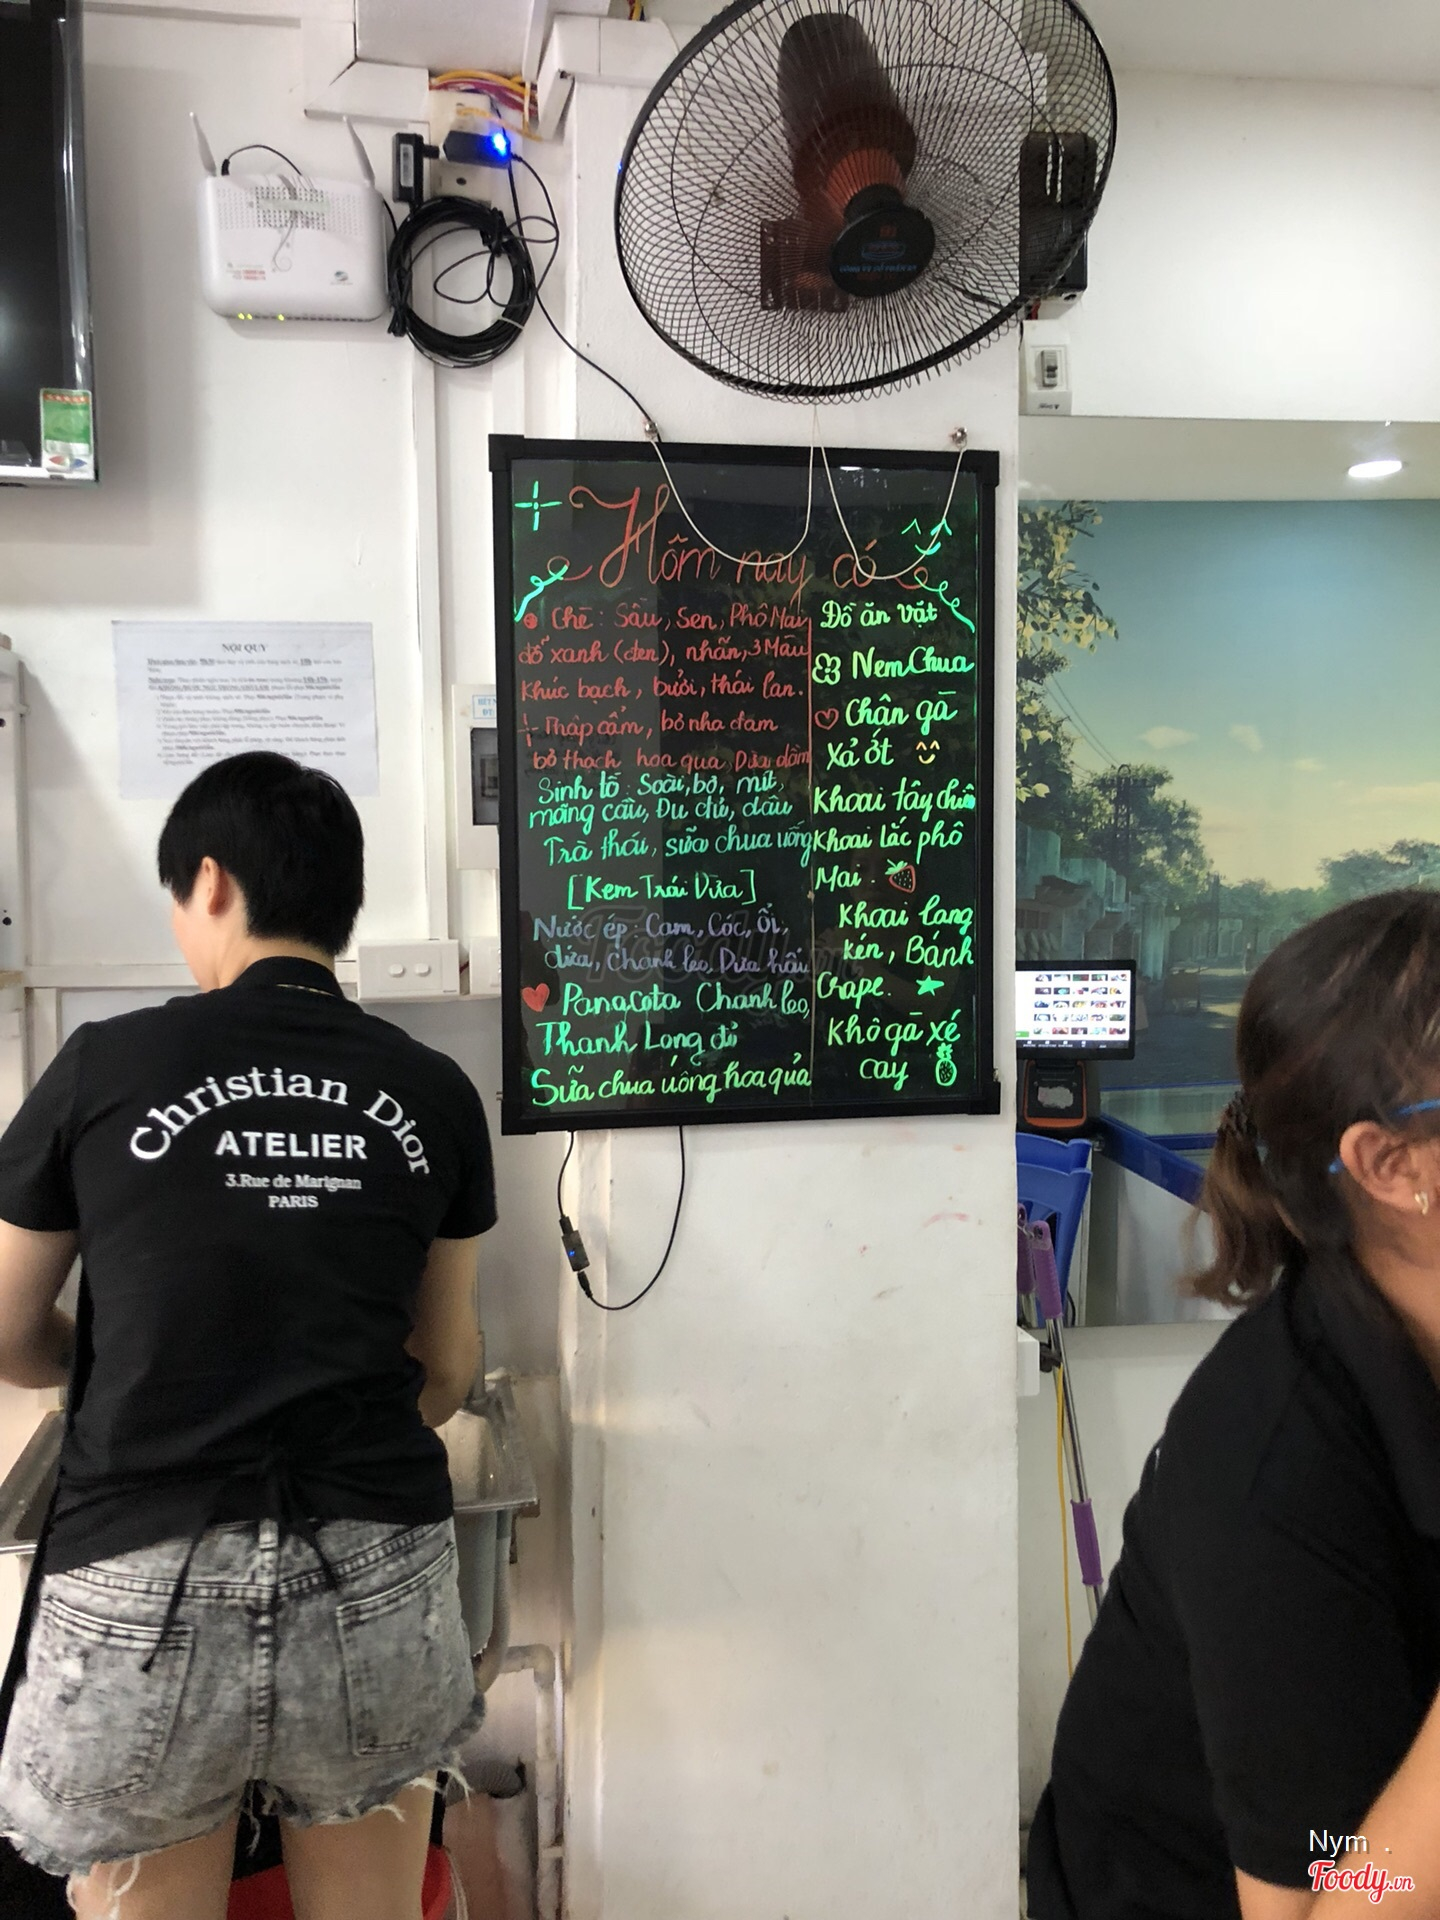 Hôm nay có
Chè: Sầu, Sen, Phô Mai
đỗ xanh (đen), nhãn, 3 Màu
Khúc bạch, bưởi, thái lan.
Thập cẩm, bỏ nha đam
bỏ thạch hoa quả, Dừa dầm
Sinh tố: Soài, bơ, mít,
mãng cầu, Đu đủ, dâu
Trà thái, sữa chua uống
[Kem Trái Dừa]
Nước ép: Cam, Cóc, Ổi,
dứa, Chanh leo, Dưa hấu
Panacota Chanh leo,
Thanh Long đỏ
Sữa chua uống hoa quả
Đồ ăn vặt
Nem Chua
Chân gà
Xả ớt
Khoai tây chiên
Khoai lắc phô
Mai.
Khoai lang
kén, Bánh
Crape.
Khô gà xé
cay
NỘI QUY
Christian Dior
ATELIER
3.Rue de Marignan
PARIS
Nym .
Foody.vn